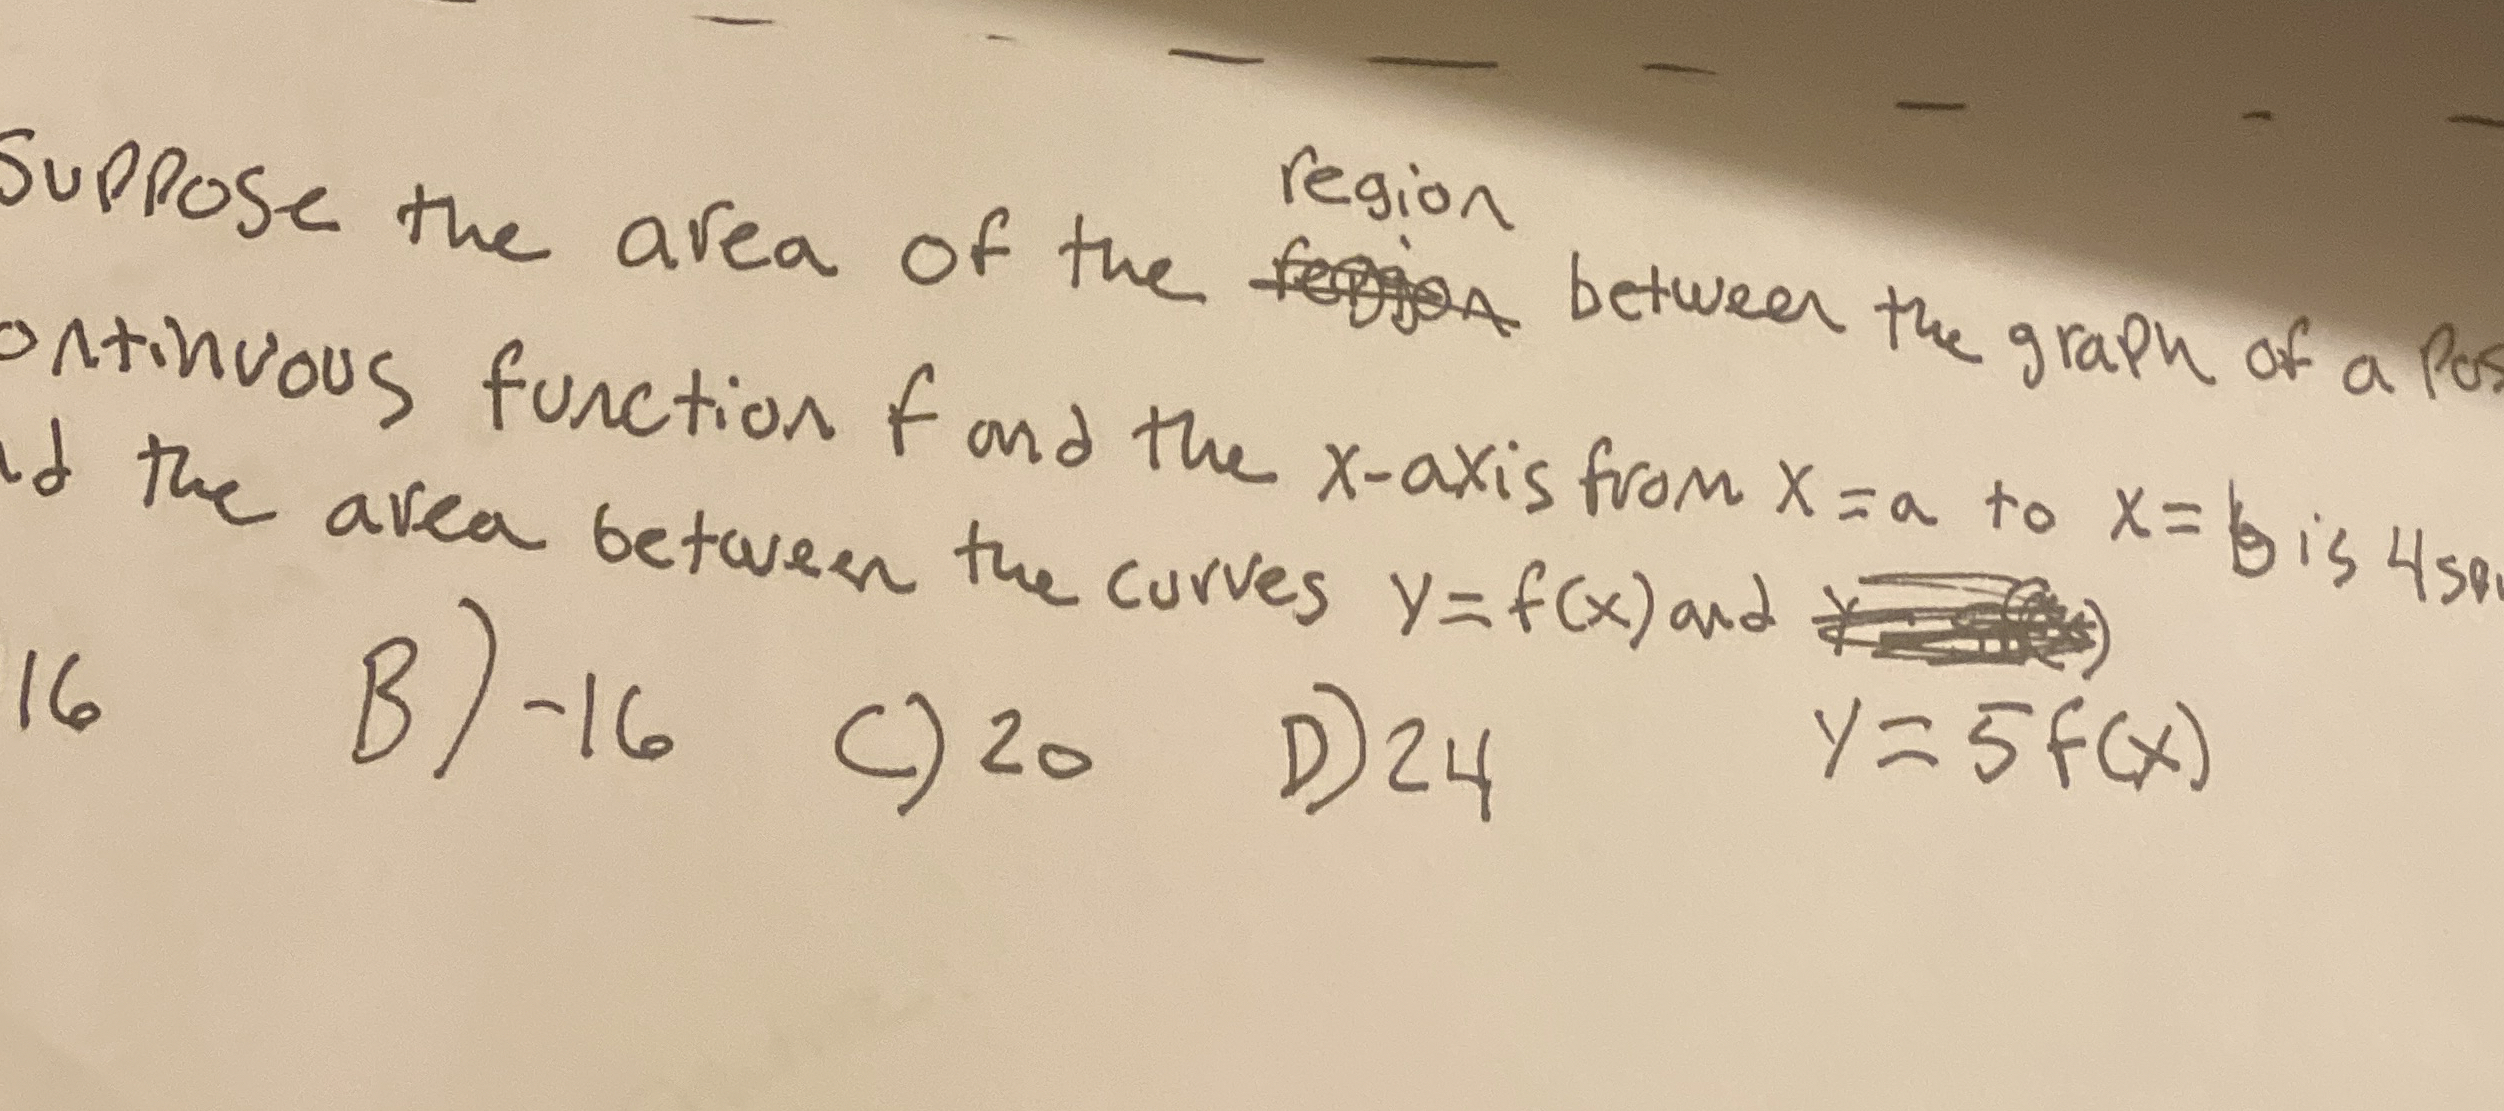 Suppose the area of the region between the graph of a Pos
ontinuous function f and the x-axis from x=a to x=b is 4 squ
nd the area between the curves y=f(x) and
y=5f(x)
16 B) -16 C) 20 D) 24